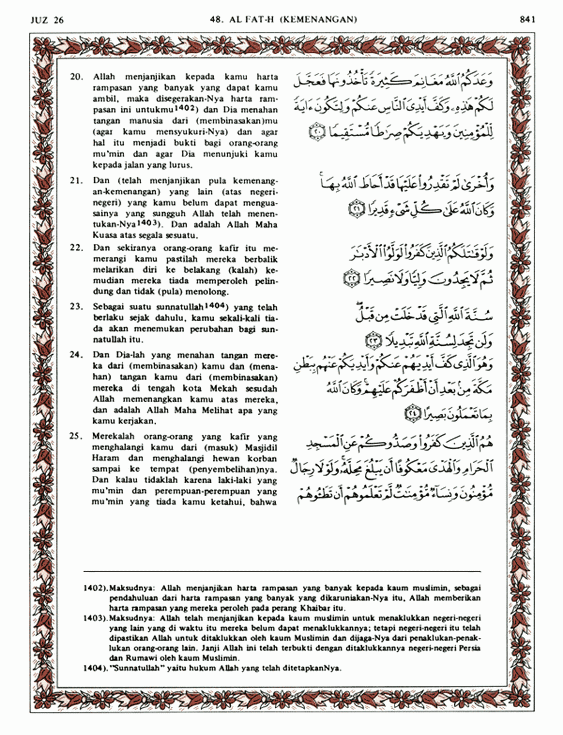 JUZ 26 48. AL FAT-H (KEMENANGAN) 841
20. Allah menjanjikan kepada kamu harta
rampasan yang banyak yang dapat kamu
ambil, maka disegerakan-Nya harta ram-
pasan ini untukmu1402) dan Dia menahan
tangan manusia dari (membinasakan)mu
(agar kamu mensyukuri-Nya) dan agar
hal itu menjadi bukti bagi orang-orang
mu'min dan agar Dia menunjuki kamu
kepada jalan yang lurus.
وَعَدَكُمُ اللَّهُ مَغَانِمَ كَثِيرَةً تَأْخُذُونَهَا فَعَجَّلَ
لَكُمْ هَٰذِهِ وَكَفَّ أَيْدِيَ النَّاسِ عَنكُمْ وَلِتَكُونَ ءَايَةً
لِّلْمُؤْمِنِينَ وَيَهْدِيَكُمْ صِرَٰطًا مُّسْتَقِيمًا ﴿٢٠﴾
21. Dan (telah menjanjikan pula kemenang-
an-kemenangan) yang lain (atas negeri-
negeri) yang kamu belum dapat mengua-
sainya yang sungguh Allah telah menen-
tukan-Nya1403). Dan adalah Allah Maha
Kuasa atas segala sesuatu.
وَأُخْرَىٰ لَمْ تَقْدِرُوا۟ عَلَيْهَا قَدْ أَحَاطَ اللَّهُ بِهَا
وَكَانَ اللَّهُ عَلَىٰ كُلِّ شَيْءٍ قَدِيرًا ﴿٢١﴾
22. Dan sekiranya orang-orang kafir itu me-
merangi kamu pastilah mereka berbalik
melarikan diri ke belakang (kalah) ke-
mudian mereka tiada memperoleh pelin-
dung dan tidak (pula) menolong.
وَلَوْ قَٰتَلَكُمُ الَّذِينَ كَفَرُوا۟ لَوَلَّوُا۟ الْأَدْبَٰرَ
ثُمَّ لَا يَجِدُونَ وَلِيًّا وَلَا نَصِيرًا ﴿٢٢﴾
23. Sebagai suatu sunnatullah1404) yang telah
berlaku sejak dahulu, kamu sekali-kali tia-
da akan menemukan perubahan bagi sun-
natullah itu.
سُنَّةَ اللَّهِ الَّتِي قَدْ خَلَتْ مِن قَبْلُ
وَلَن تَجِدَ لِسُنَّةِ اللَّهِ تَبْدِيلًا ﴿٢٣﴾
24. Dan Dia-lah yang menahan tangan mere-
ka dari (membinasakan) kamu dan (mena-
han) tangan kamu dari (membinasakan)
mereka di tengah kota Mekah sesudah
Allah memenangkan kamu atas mereka,
dan adalah Allah Maha Melihat apa yang
kamu kerjakan.
وَهُوَ الَّذِي كَفَّ أَيْدِيَهُمْ عَنكُمْ وَأَيْدِيَكُمْ عَنْهُم بِبَطْنِ
مَكَّةَ مِنۢ بَعْدِ أَنْ أَظْفَرَكُمْ عَلَيْهِمْ وَكَانَ اللَّهُ
بِمَا تَعْمَلُونَ بَصِيرًا ﴿٢٤﴾
25. Merekalah orang-orang yang kafir yang
menghalangi kamu dari (masuk) Masjidil
Haram dan menghalangi hewan korban
sampai ke tempat (penyembelihan)nya.
Dan kalau tidaklah karena laki-laki yang
mu'min dan perempuan-perempuan yang
mu'min yang tiada kamu ketahui, bahwa
هُمُ الَّذِينَ كَفَرُوا۟ وَصَدُّوكُمْ عَنِ الْمَسْجِدِ
الْحَرَامِ وَالْهَدْيَ مَعْكُوفًا أَن يَبْلُغَ مَحِلَّهُ وَلَوْلَا رِجَالٌ
مُّؤْمِنُونَ وَنِسَآءٌ مُّؤْمِنَٰتٌ لَّمْ تَعْلَمُوهُمْ أَن تَطَـُٔوهُمْ
1402). Maksudnya: Allah menjanjikan harta rampasan yang banyak kepada kaum muslimin, sebagai
pendahuluan dari harta rampasan yang banyak yang dikaruniakan-Nya itu, Allah memberikan
harta rampasan yang mereka peroleh pada perang Khaibar itu.
1403). Maksudnya: Allah telah menjanjikan kepada kaum muslimin untuk menaklukkan negeri-negeri
yang lain yang di waktu itu mereka belum dapat menaklukkannya; tetapi negeri-negeri itu telah
dipastikan Allah untuk ditaklukkan oleh kaum Muslimin dan dijaga-Nya dari penaklukan-penak-
lukan orang-orang lain. Janji Allah ini telah terbukti dengan ditaklukkannya negeri-negeri Persia
dan Rumawi oleh kaum Muslimin.
1404). "Sunnatullah" yaitu hukum Allah yang telah ditetapkanNya.